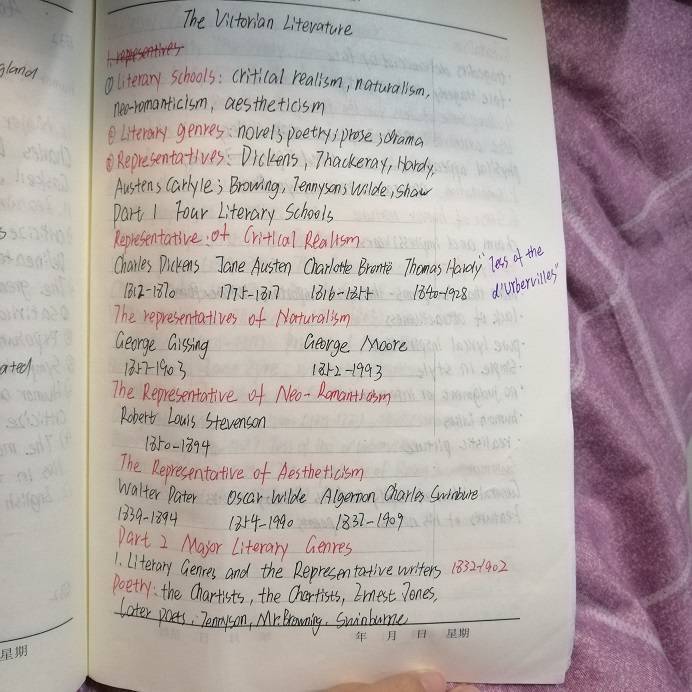 The Victorian Literature
1. representives
① Literary schools: critical realism, naturalism,
neo-romanticism, aestheticism
② Literary genres: novel; poetry; prose; drama
③ Representatives: Dickens, Thackeray, Hardy,
Austen; Carlyle; Browing, Tennyson; Wilde, Shaw
Part 1 Four Literary Schools
Representative: of Critical Realism
Charles Dickens Jane Austen Charlotte Brontë Thomas Hardy "Tess of the
1812-1870 1775-1817 1816-1855 1840-1928 d'Urbervilles"
The representatives of Naturalism
George Gissing George Moore
1857-1903 1852-1993
The Representative of Neo-Romanticism
Robert Louis Stevenson
1850-1894
The Representative of Aestheticism
Walter Pater Oscar Wilde Algernon Charles Swinbure
1839-1894 1854-1990 1837-1909
Part 2 Major Literary Genres
1. Literary Genres and the Representative writers 1832-1902
Poetry: the Chartists, the Chartists, Ernest Jones,
Later poets: Tennyson, Mr. Browning, Swinburne
年 月 日 星期
星期